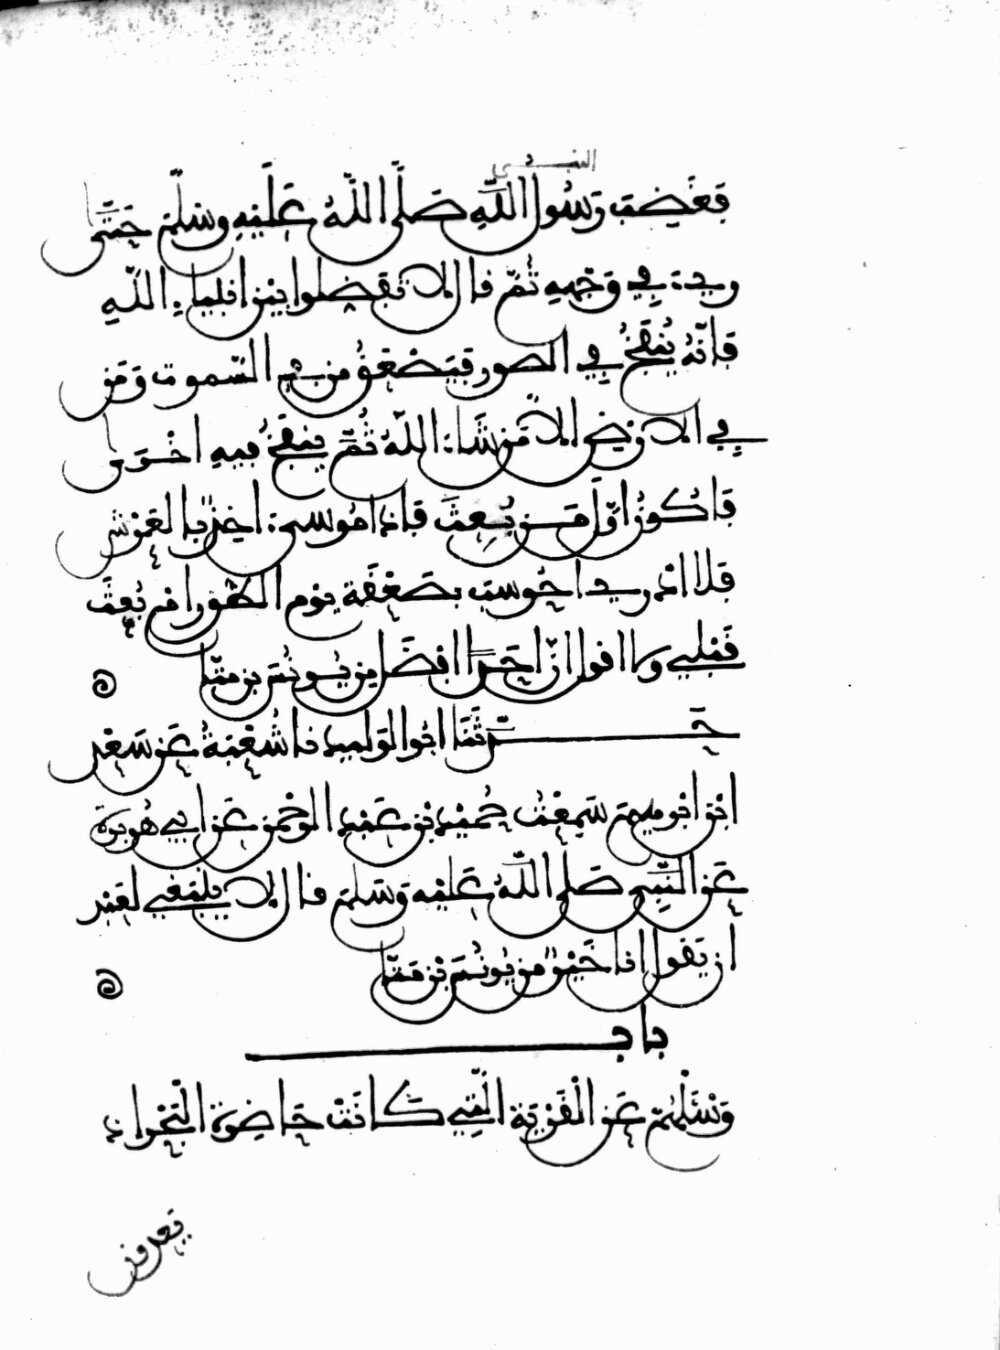 النبي
فَغَضِبَ رَسُولُ اللَّهِ صَلَّى اللَّهُ عَلَيْهِ وَسَلَّمَ حَتَّى
ريء في وَجْهِهِ ثُمَّ قال لا تفضلوا بين انبياء الله
فَإِنَّهُ يُنْفَخُ في الصور فَيَصْعَقُ من في السموت وَمَن
في الارض الا من شاء اللهُ ثُمَّ ينفخُ فيه اخرى
فَاكُونُ اوَّلَ مَن بُعِثَ فاذا موسى اخِذٌ بالعرش
فلا ادري احُوسِبَ بصَعْقَة يوم الطور ام بُعِثَ
قَبْلِي ولا اقول انّ احَدًا افضَل من يُونُسَ بن متّى
حَدَّثَنَا ابُو الوليد نا شُعْبَةُ عَن سَعْد
ابن ابرهيم سَمِعْتُ حُمَيْد بن عَبْد الرحمن عَن ابي هُريرة
عَن النَّبِيّ صَلى اللَّهُ عَلَيْهِ وَسَلم قال لا ينبَغي لعَبْد
ان يَقول انا خَيْرٌ من يُونُسَ بْن مَتّى
باب
وَسْئَلْهُمْ عَن الْقَرْيَة الَّتِي كَانَتْ حَاضِرة الْبَحْر اذ
يعدون